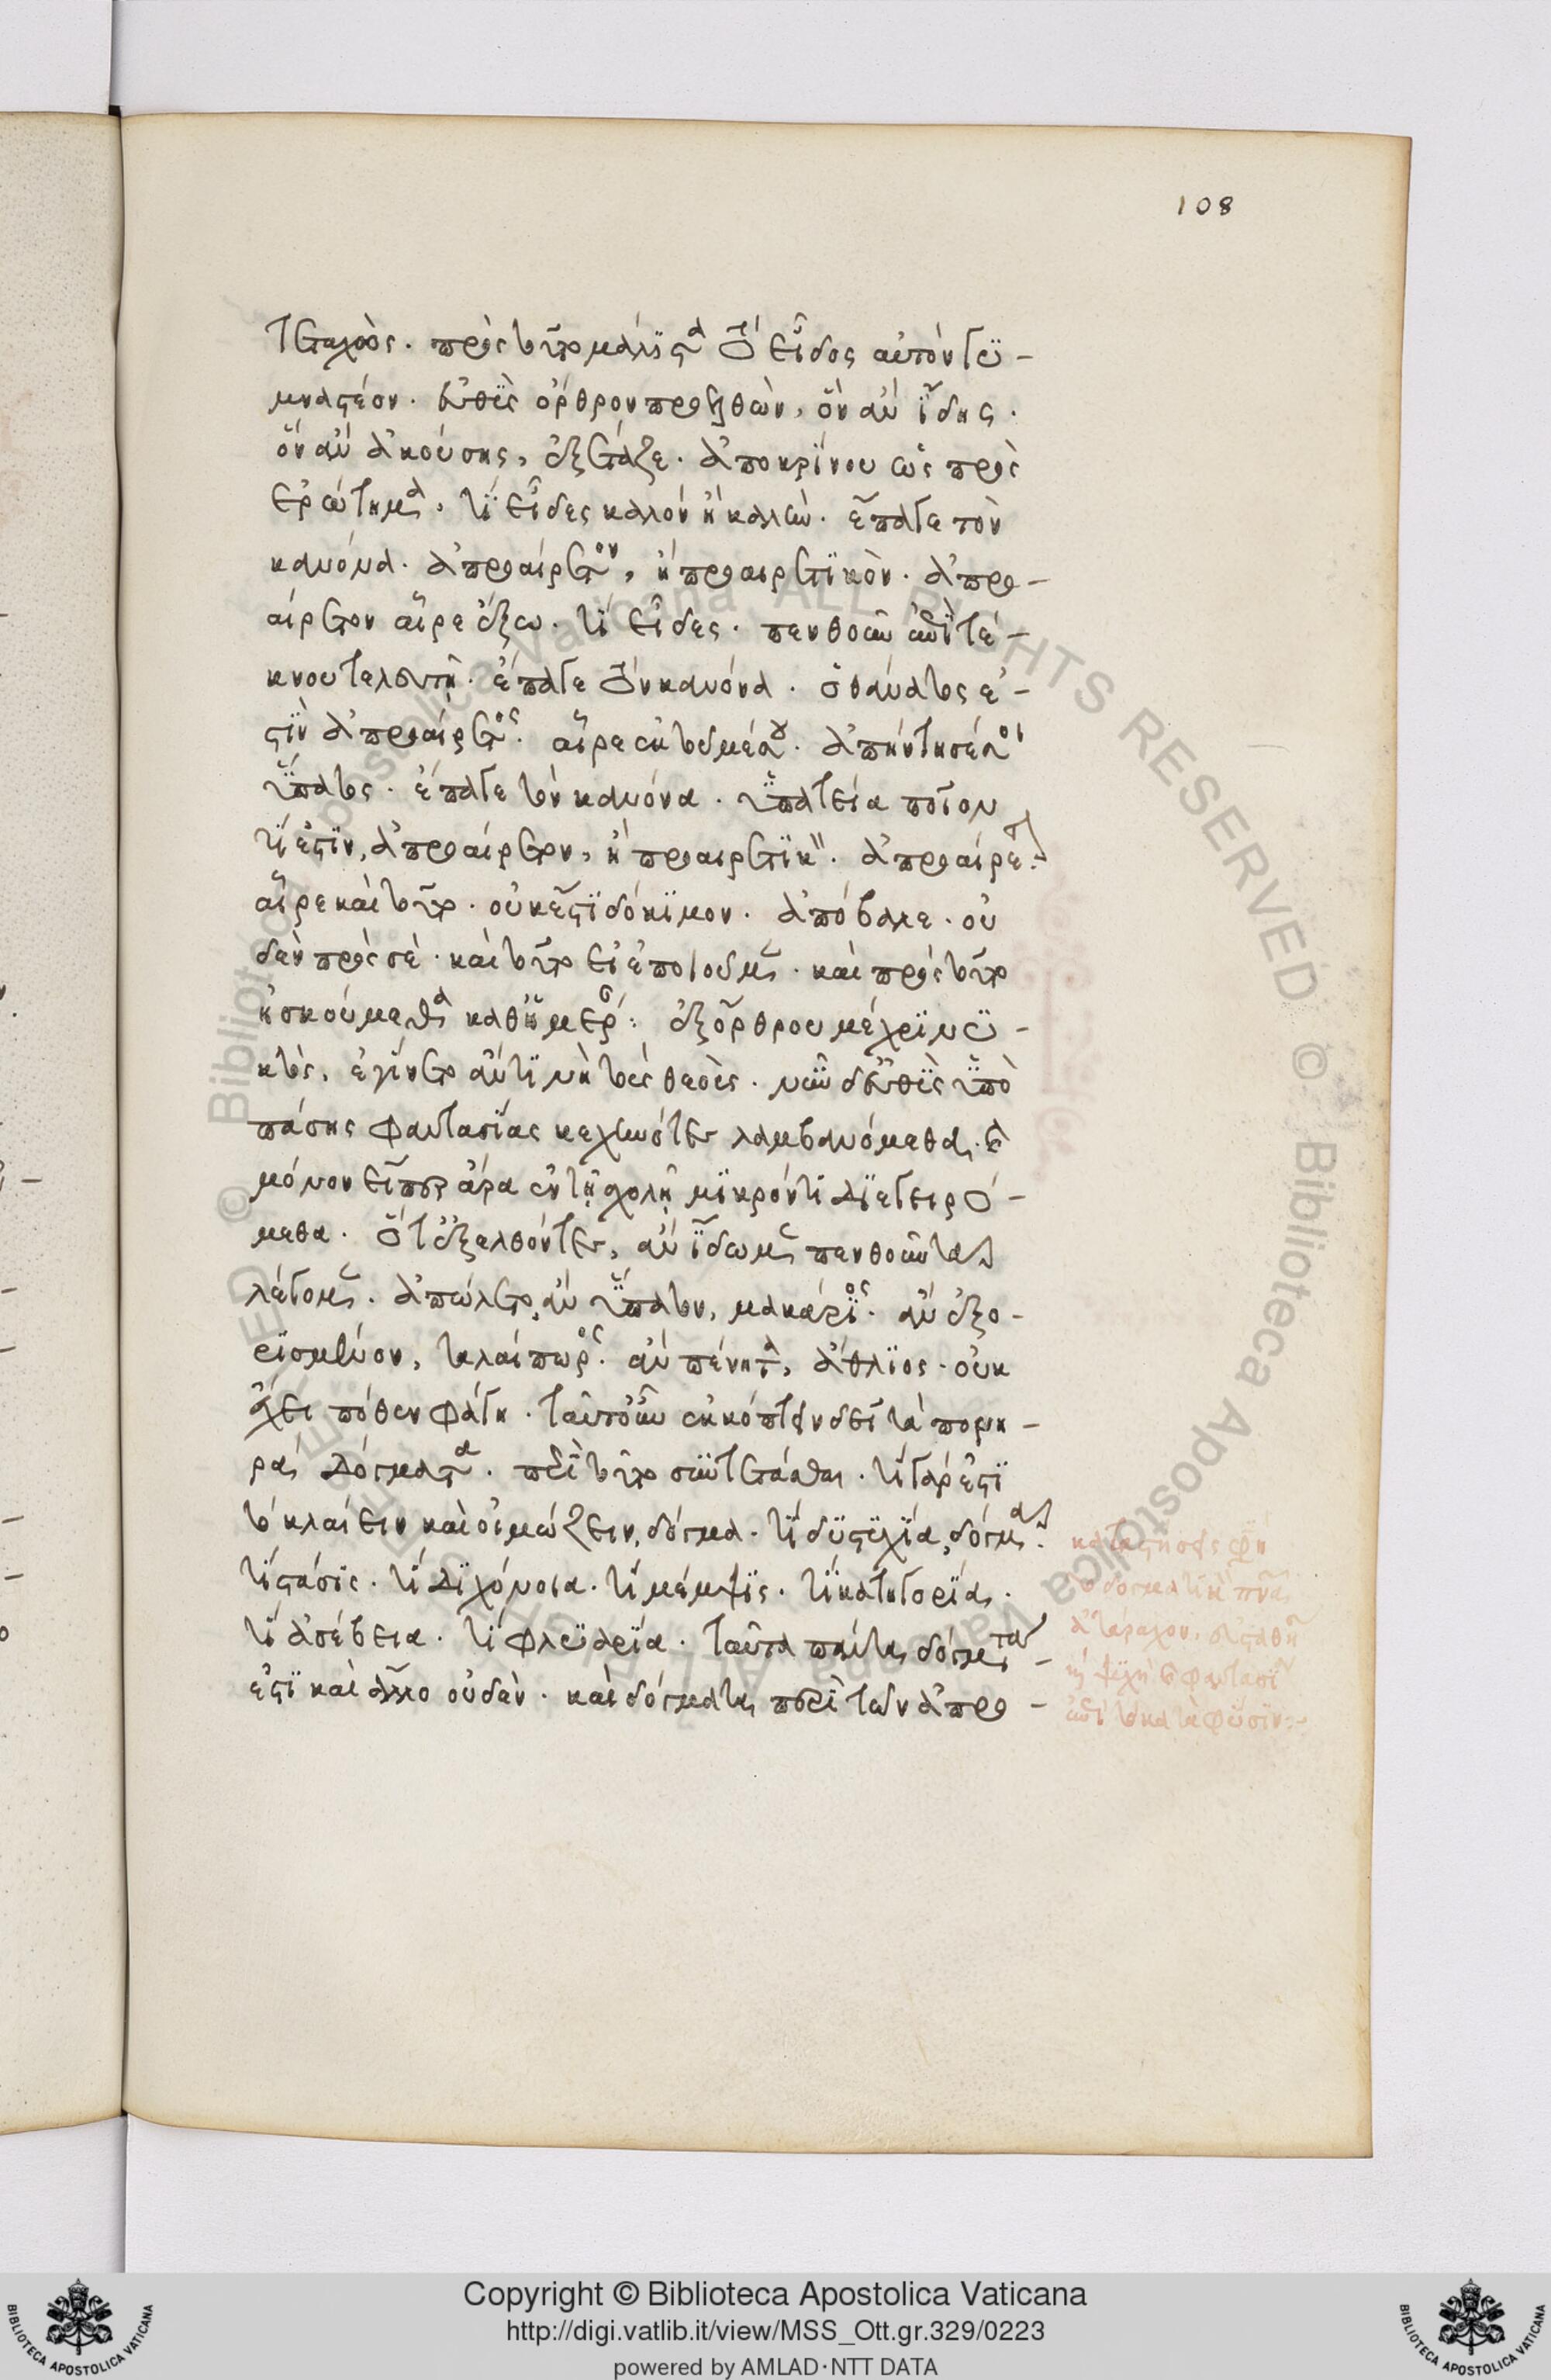 108
τεταχὼς. πρὸς τοῦτο μάλιστα τὸ εἶδος αὐτὸν γυ-
μναστέον. εὐθὺς ὄρθρον προελθὼν, ὃν ἂν ἴδης.
ὃν ἂν ἀκούσης, ἐξέταζε. ἀποκρίνου ὡς πρὸς
ἐρώτημα, τί εἶδες καλὸν ἢ καλὴν. ἔπαγε τὸν
κανόνα. ἀπροαίρετον, ἢ προαιρετικὸν. ἀπρο-
αίρετον αἶρε ἔξω. τί εἶδες. πενθοῦντ' ἐπὶ τέ-
κνου τελευτῆ. ἔπαγε τὸν κανόνα. ὁ θάνατος ἐ-
στὶν ἀπροαίρετος. αἶρε ἐκ τοῦ μέσου. ἀπήντησέ σοι
ὕπατος. ἔπαγε τὸν κανόνα. ὑπατεία ποῖόν
τί ἐστιν, ἀπροαίρετον, ἢ προαιρετικ. ἀπροαίρετον.
αἶρε καὶ τοῦτο. οὐκ ἔστι δόκιμον. ἀπόβαλε. οὐ
δὲν πρὸς σὲ. καὶ τοῦτο εἰ ἐποιοῦμεν. καὶ πρὸς τοῦτο
ἠσκούμεθα καθημέραν. ἐξ ὄρθρου μέχρι νυ-
κτὸς, ἐγίνετο ἄν τι νὴ τοὺς θεοὺς. νῦν δ' εὐθὺς ὑπὸ
πάσης φαντασίας κεχηνότες λαμβανόμεθα. καὶ
μόνον εἴπερ ἄρα ἐν τῆ σχολῆ μικρόν τι διεγειρό-
μεθα. εἶτ' ἐξελθόντες, ἂν ἴδωμεν πενθοῦντα
λέγομεν. ἀπώλετο, ἂν ὕπατον, μακάριος. ἂν ἐξο-
ρισμένον, ταλαίπωρος. ἂν πένητα, ἄθλιος. οὐκ
ἔχει πόθεν φάγη. ταῦτ' οὖν ἐκκόπτειν δεῖ τὰ πονη-
ρὰ δόγματα. περὶ τοῦτο συντετάσθαι. τί γάρ ἐστι
τὸ κλαίειν καὶ οἰμώζειν, δόγμα. τί δυστυχία, δόγμα.
τί στάσις. τί διχόνοια. τί μέμψις. τί κατηγορία.
τί ἀσέβεια. τί φλυαρία. ταῦτα πάντα δόγματα
ἐστὶ καὶ ἄλλο οὐδὲν. καὶ δόγματα περὶ τῶν ἀπρο-
ἀτάραχον.
κατὰ φύσιν
© Biblioteca Apostolica Vaticana ALL RIGHTS RESERVED
© Biblioteca Apostolica Vaticana ALL RIGHTS RESERVED
BIBLIOTECA APOSTOLICA VATICANA
Copyright © Biblioteca Apostolica Vaticana
http://digi.vatlib.it/view/MSS_Ott.gr.329/0223
powered by AMLAD·NTT DATA
BIBLIOTECA APOSTOLICA VATICANA